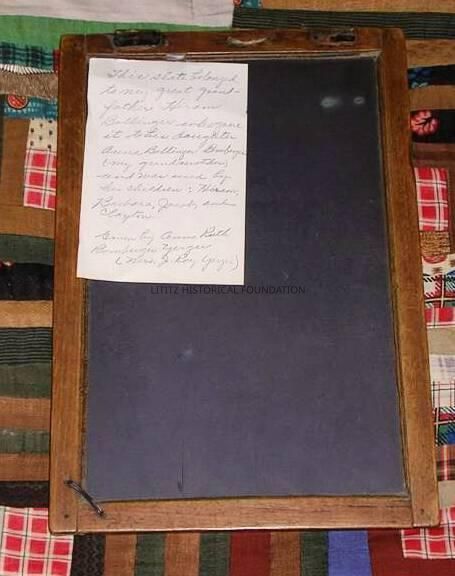 This slate belonged
to my great grand-
father Hiram
Bollinger who gave
it to his daughter
Anna Bollinger Bomberger
(my grandmother)
and was used by
her children: Hiram,
Barbara, Jacob, and
Clayton.
Given by Anna Ruth
Bomberger Yerger
(Mrs. J. Roy Yerger)
LITITZ HISTORICAL FOUNDATION